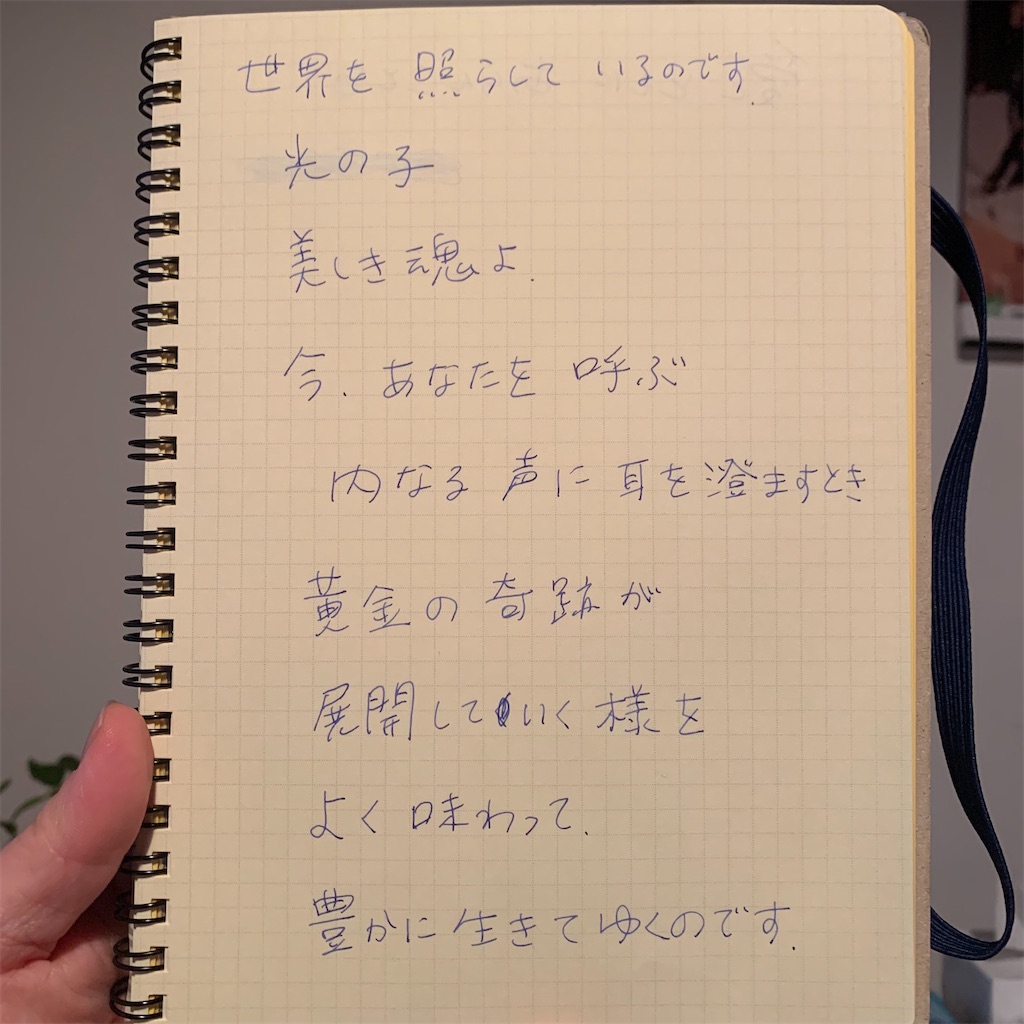 世界を 照らして いるのです.
光の子
美しき魂よ.
今. あなたを 呼ぶ
内なる 声に 耳を澄ますとき
黄金の 奇跡が
展開していく 様を
よく 味わって.
豊かに 生きて ゆくのです.